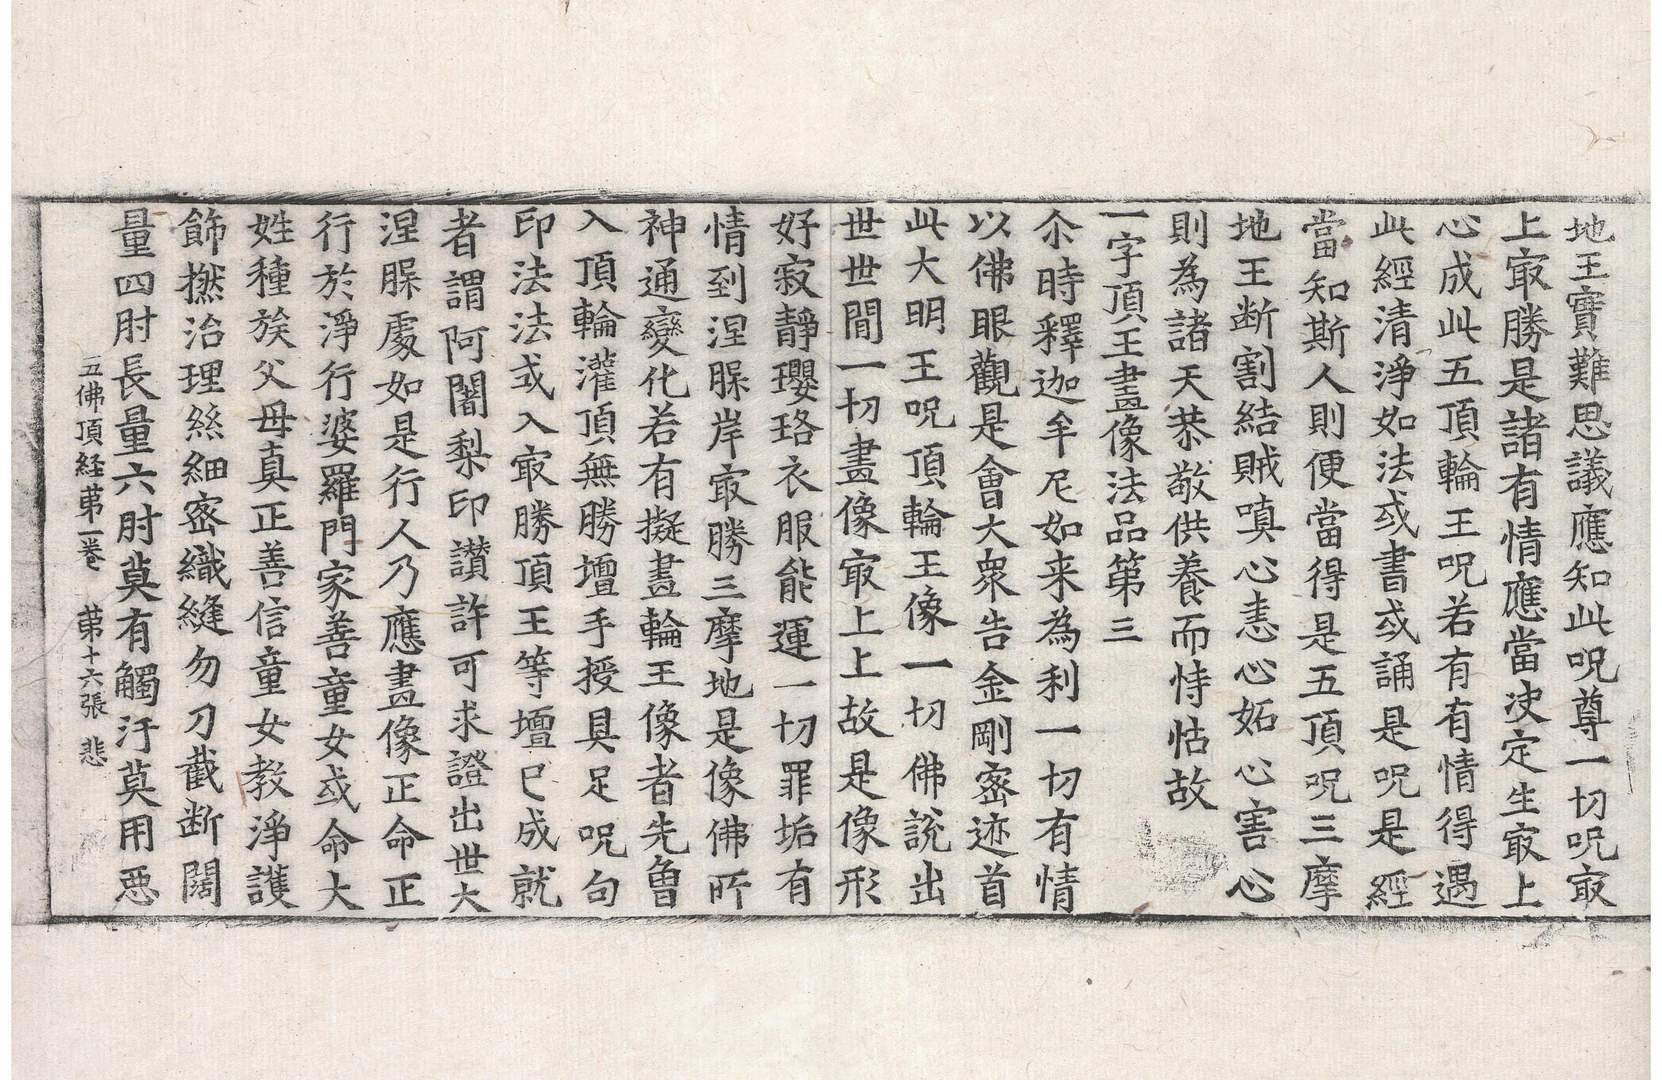 地王實難思議應知此呪尊一切呪㝡
上㝡勝是諸有情應當決定生㝡上
心成此五頂輪王呪若有有情得遇
此經清淨如法或書或誦是呪是經
當知斯人則便當得是五頂呪三摩
地王断割結賊嗔心恚心妬心害心
則為諸天恭敬供養而恃怙故
一字頂王畫像法品第三
尒時釋迦牟尼如来為利一切有情
以佛眼觀是會大衆告金剛密迹首
此大明王呪頂輪王像一切佛說出
世世間一切畫像㝡上上故是像形
好寂靜瓔珞衣服能運一切罪垢有
情到涅槃岸㝡勝三摩地是像佛所
神通變化若有擬畫輪王像者先魯
入頂輪灌頂無勝壇手授具足呪句
印法法或入㝡勝頂王等壇已成就
者謂阿闍梨印讃許可求證出世大
涅槃處如是行人乃應畫像正命正
行於淨行婆羅門家善童女或命大
姓種族父母真正善信童女教淨護
飾撚治理絲細密織縫勿刀截断闊
量四肘長量六肘莫有觸汙莫用惡
五佛頂経苐一巻　苐十六張　悲